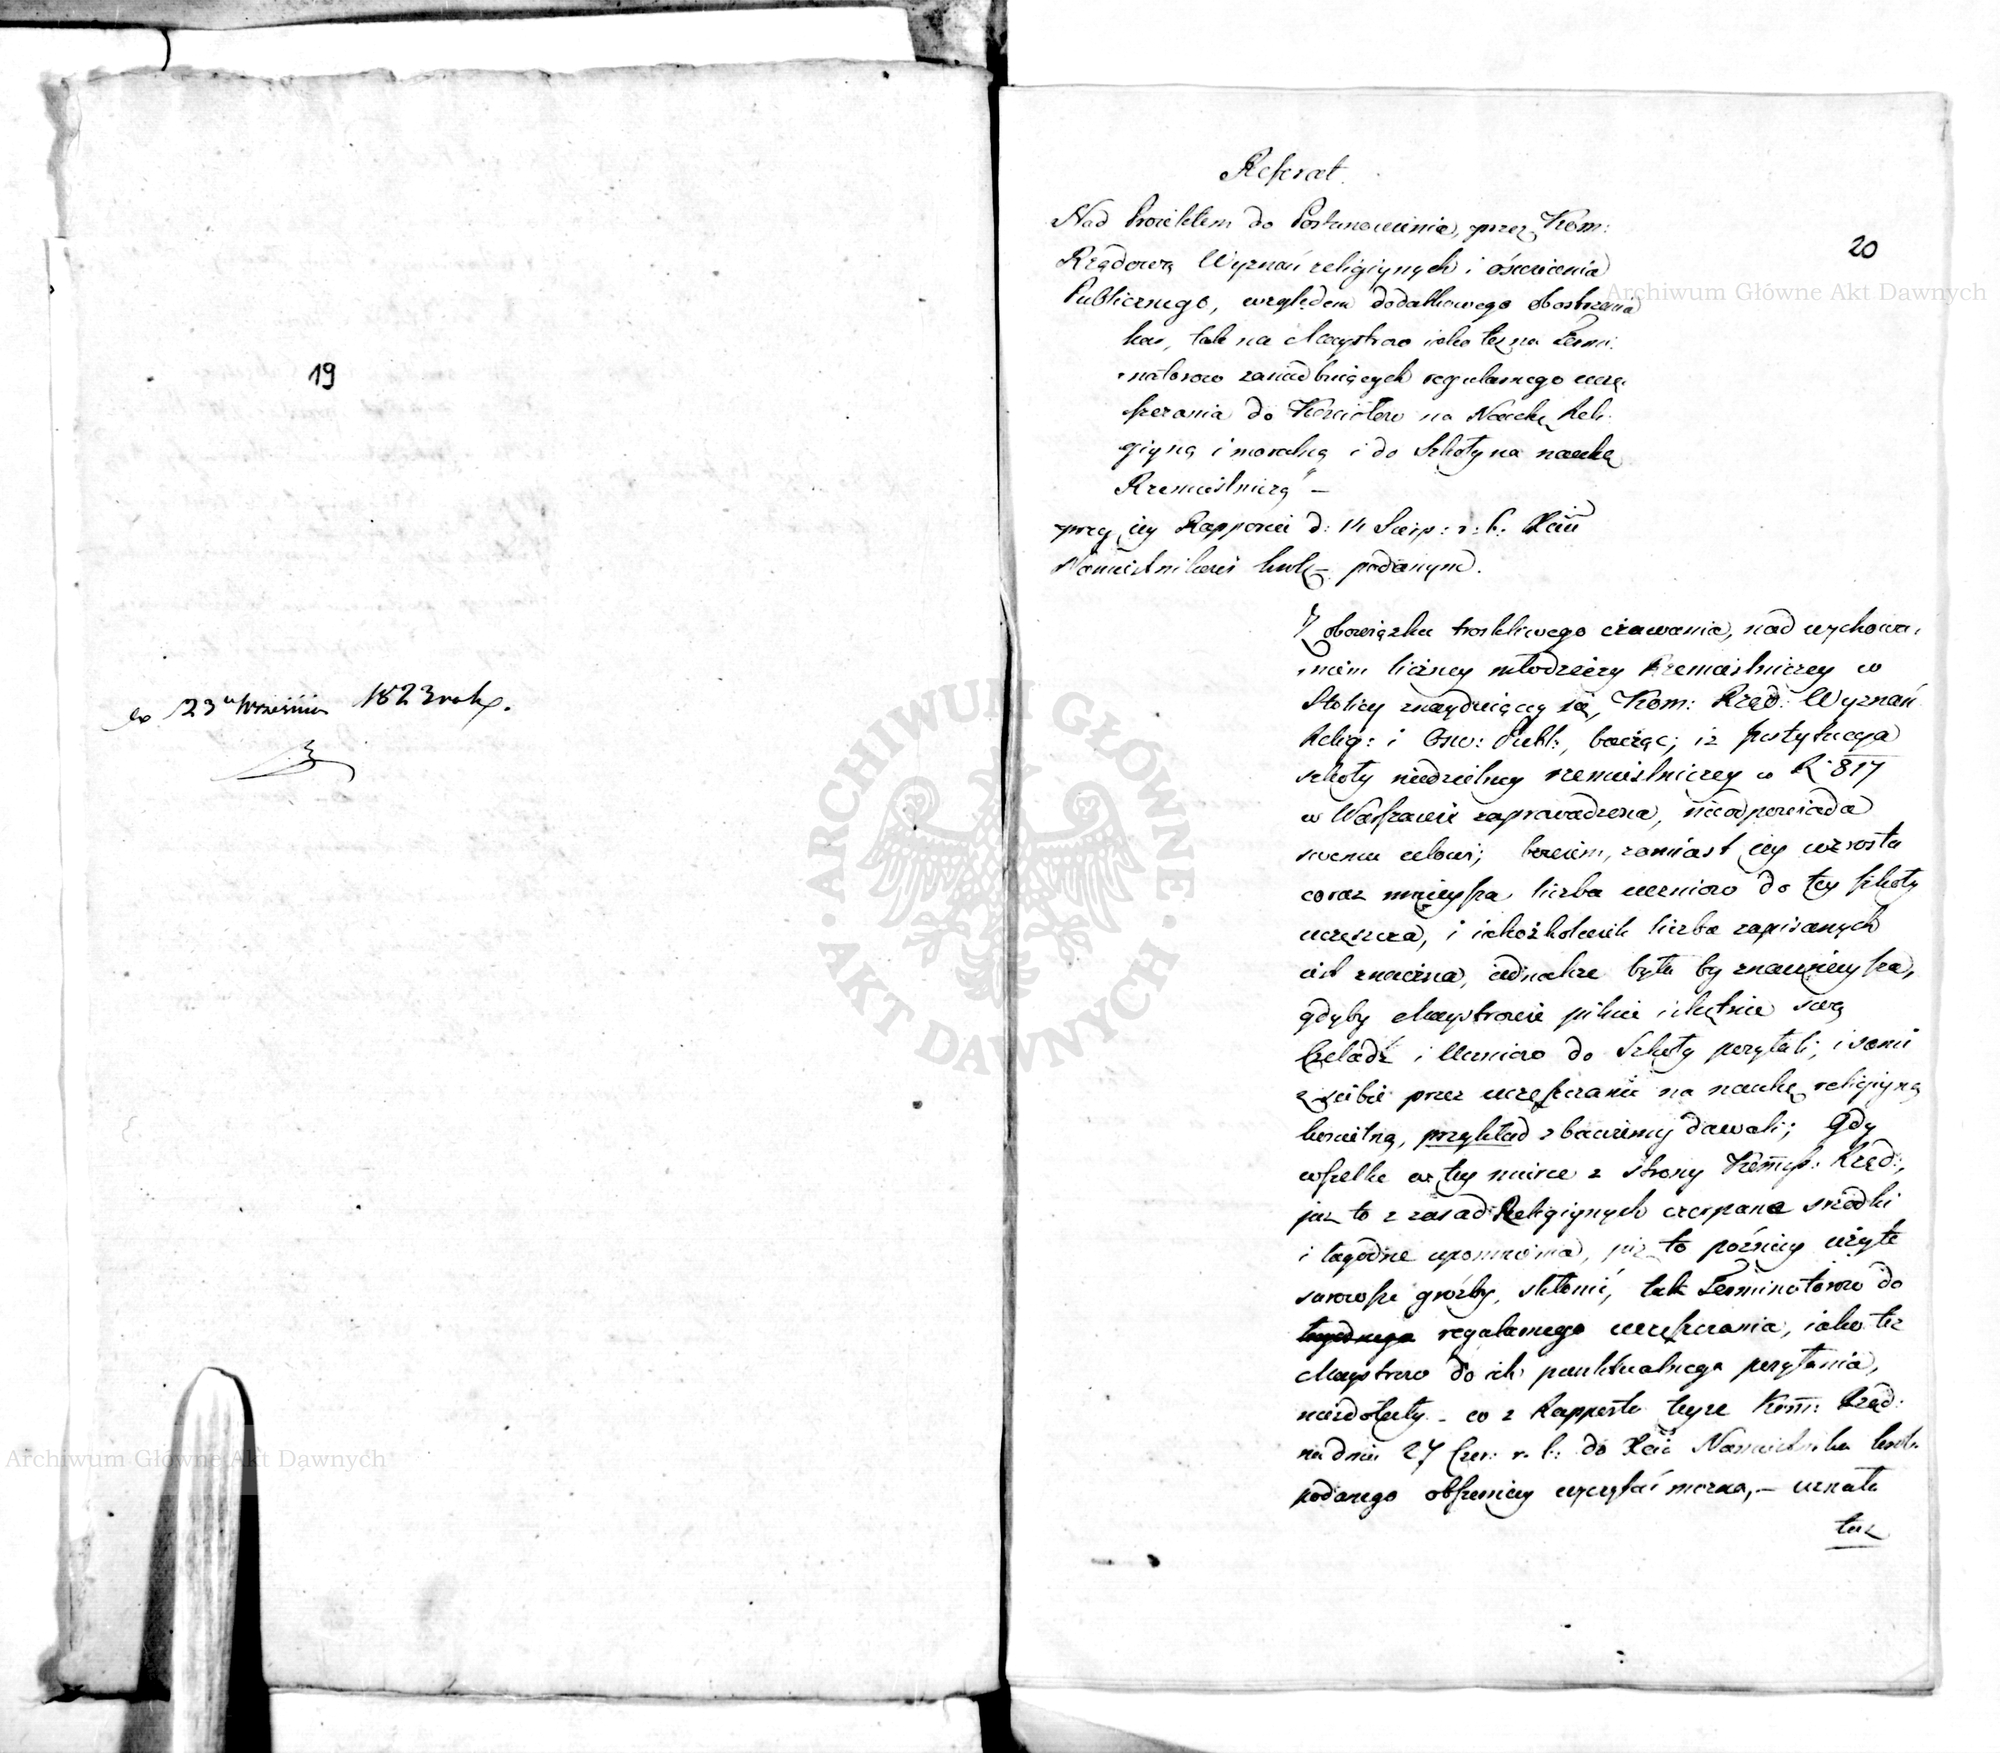 19
23 Września 1823 roku.
20
Referat.
Nad Proiektem do Postanowienia, przez Kom:
Rządową Wyznań religiynych i oświecenia
Publicznego, względem dodatkowego obostrzenia
kar, tak na Maystrow iako też na Termi-
natorow zaniedbuiących regularnego uczę-
szczania do Kościołow na Naukę Reli-
giyną i moralną i do Szkoły na naukę
Rzemieślniczą" —
przy iey Rapporcie d: 14 Sierp: r: b: Xciu
Namiestnikowi Król: podanym.
Z obowiązku troskliwego czuwania, nad wychowa-
niem liczney młodzieży Rzemieślniczey w
Stolicy znayduiącey się, Kom: Rząd: Wyznań
Relig: i Ośw: Publ:, bacząc; iż Instytucya
szkoły niedzielney rzemieślniczey w R. 817
w Warszawie zaprowadzona, nieodpowiada
swemu celowi; bowiem, zamiast iey wzrostu
coraz mnieysza liczba uczniow do tey szkoły
uczęszcza, i iakożkolwiek liczba zapisanych
iest znaczna, iednakże byłaby znacznieysza,
gdyby Maystrowie pilnie i chętnie swą
Czeladź i Uczniow do Szkoły posyłali, i sami
z siebie przez uczęszczanie na naukę religiyną
kościelną, przykład zbawienny dawali; Gdy
wszelkie w tey mierze z strony Kommis: Rząd:,
już to z zasad Religiynych czerpane środki
i łagodne upomnienia, już to poźniey użyte
surowsze groźby, skłonić, tak Terminatorow do
regularnego uczęszczania, iako też
Maystrow do ich punktualnego posyłania,
niezdołały — co z Rapportu teyże Kom: Rząd:
na dniu 27 Czer: r. b: do Xcia Namiestnika Król:
podanego obszerniey wyczytać można, — uznała
taż
ARCHIWUM GŁÓWNE · AKT DAWNYCH ·
Archiwum Główne Akt Dawnych
Archiwum Główne Akt Dawnych